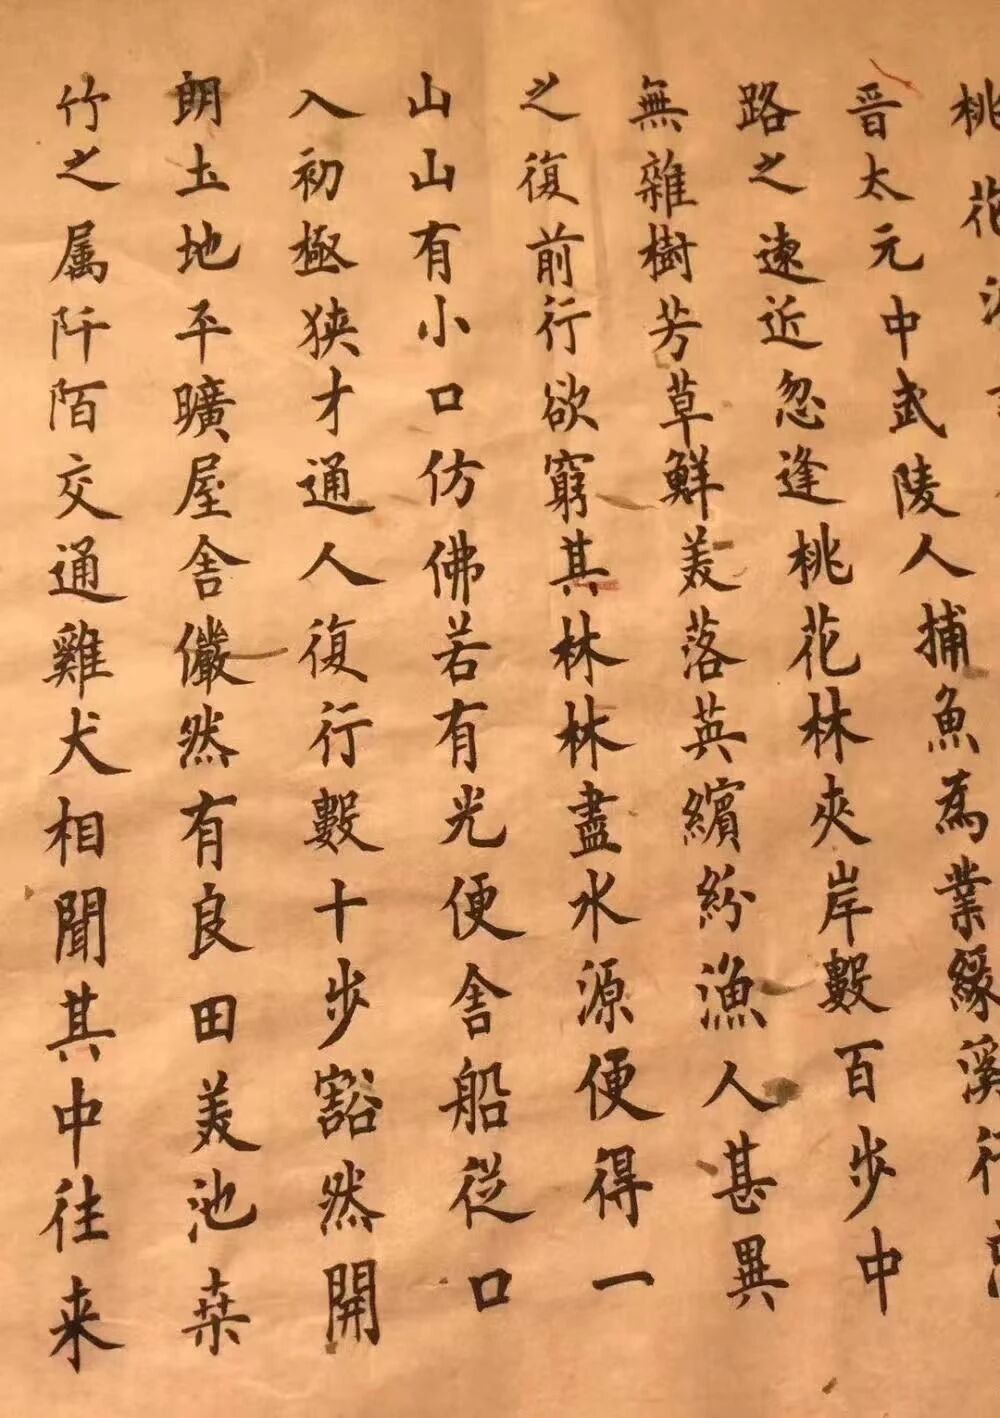 桃花
晋太元中武陵人捕魚為業緣溪行
路之遠近忽逢桃花林夾岸數百步中
無雜樹芳草鮮美落英繽紛漁人甚異
之復前行欲窮其林林盡水源便得一
山山有小口仿佛若有光便舍船從口
入初極狹才通人復行數十步豁然開
朗土地平曠屋舍儼然有良田美池桒
竹之属阡陌交通雞犬相聞其中往来